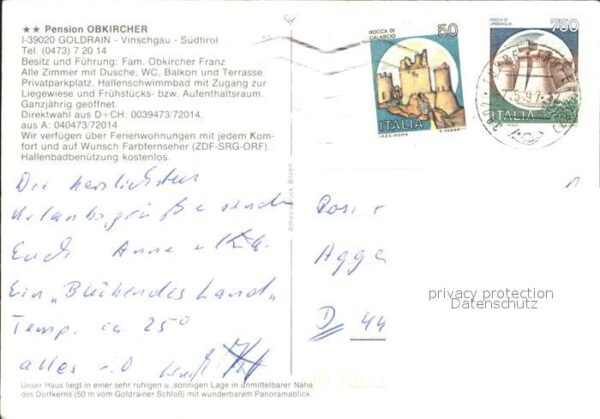 ★★ Pension OBKIRCHER
I-39020 GOLDRAIN - Vinschgau - Südtirol
Tel. (0473) 7 20 14
Besitz und Führung: Fam. Obkircher Franz
Alle Zimmer mit Dusche, WC, Balkon und Terrasse.
Privatparkplatz. Hallenschwimmbad mit Zugang zur
Liegewiese und Frühstücks- bzw. Aufenthaltsraum.
Ganzjährig geöffnet.
Direktwahl aus D+CH: 0039473/72014.
aus A: 040473/72014
Wir verfügen über Ferienwohnungen mit jedem Kom-
fort und auf Wunsch Farbfernseher (ZDF-SRG-ORF).
Hallenbadbenützung kostenlos.
Die herzlichsten
Urlaubsgrüße senden
Euch Anne
Ein „Blühendes Land"
Temp. ca 25°
alles i.O
Unser Haus liegt in einer sehr ruhigen u. sonnigen Lage in unmittelbarer Nähe
des Dorfkerns (50 m vom Goldrainer Schloß) mit wunderbarem Panoramablick
ROCCA DI
CALASCIO
50
ITALIA
ROCCA DI
URBISAGLIA
750
ITALIA
Agga
D 44
privacy protection
Datenschutz